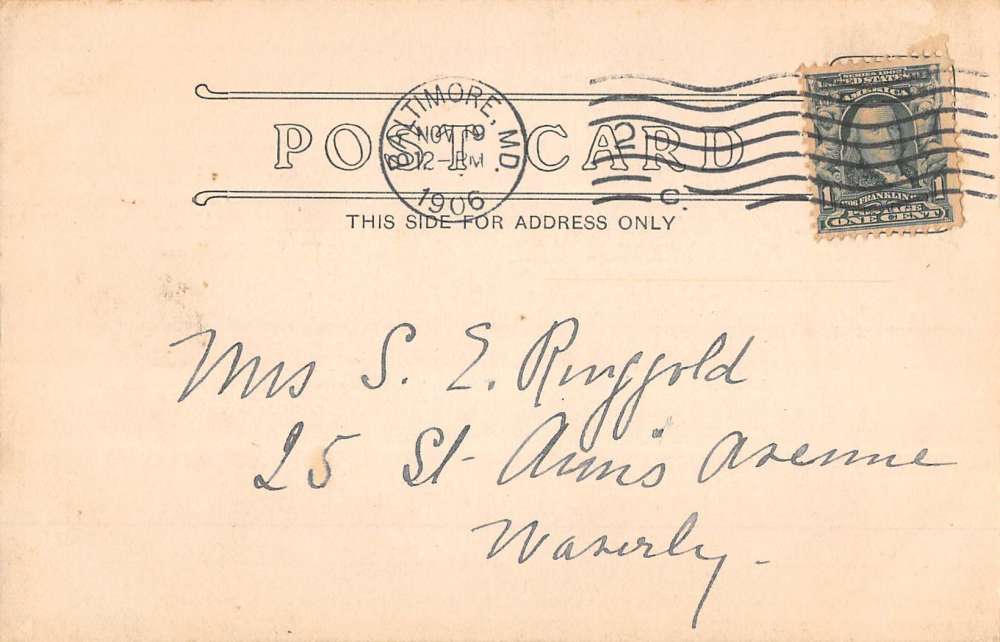 POST CARD
BALTIMORE, MD.
NOV 19
12-PM
1906
2
C.
THIS SIDE FOR ADDRESS ONLY
SERIES 1902
UNITED STATES
AMERICA
1 1
FRANKLIN
POSTAGE
ONE CENT
Mrs S. E. Ringgold
25 St Ann's Avenue
Waverly.